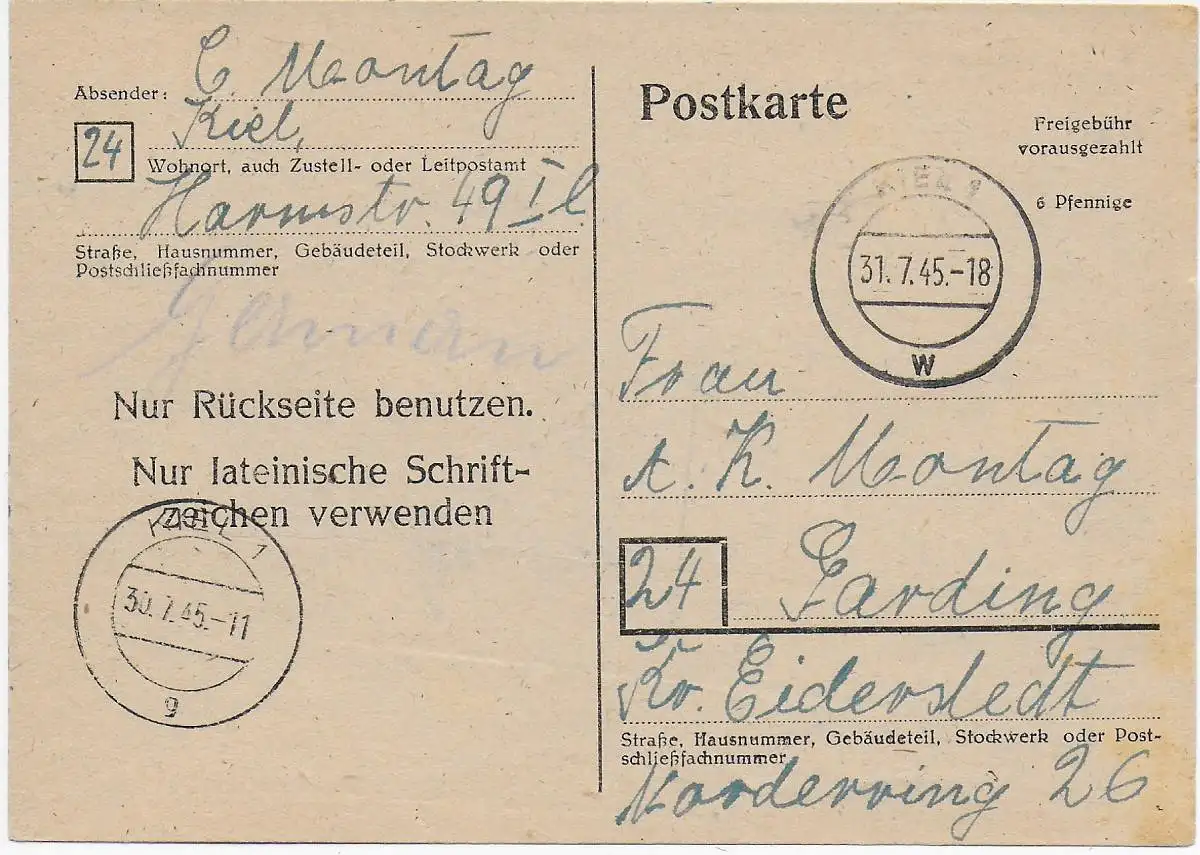 Absender: C. Montag
Kiel,
24
Wohnort, auch Zustell- oder Leitpostamt
Harmstr. 49 I l
Straße, Hausnummer, Gebäudeteil, Stockwerk oder
Postschließfachnummer
German
Nur Rückseite benutzen.
Nur lateinische Schrift-
zeichen verwenden
KIEL 1
30.7.45.-11
g
Postkarte
Freigebühr
vorausgezahlt
6 Pfennige
KIEL 1
31.7.45.-18
w
Frau
A. K. Montag
24 Garding
Kr. Eiderstedt
Straße, Hausnummer, Gebäudeteil, Stockwerk oder Post-
schließfachnummer
Norderring 26